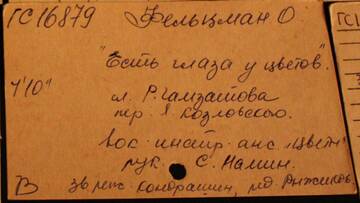 ГС16879 Фельцман О
"Есть глаза у цветов".
4'10"
сл. Р. Гамзатова
пер. Я. Козловского.
Вок инстр. анс. "Цветы"
рук. С. Намин.
В зв. реж. Кондрашин, ред. Рыжиков.
ГС1